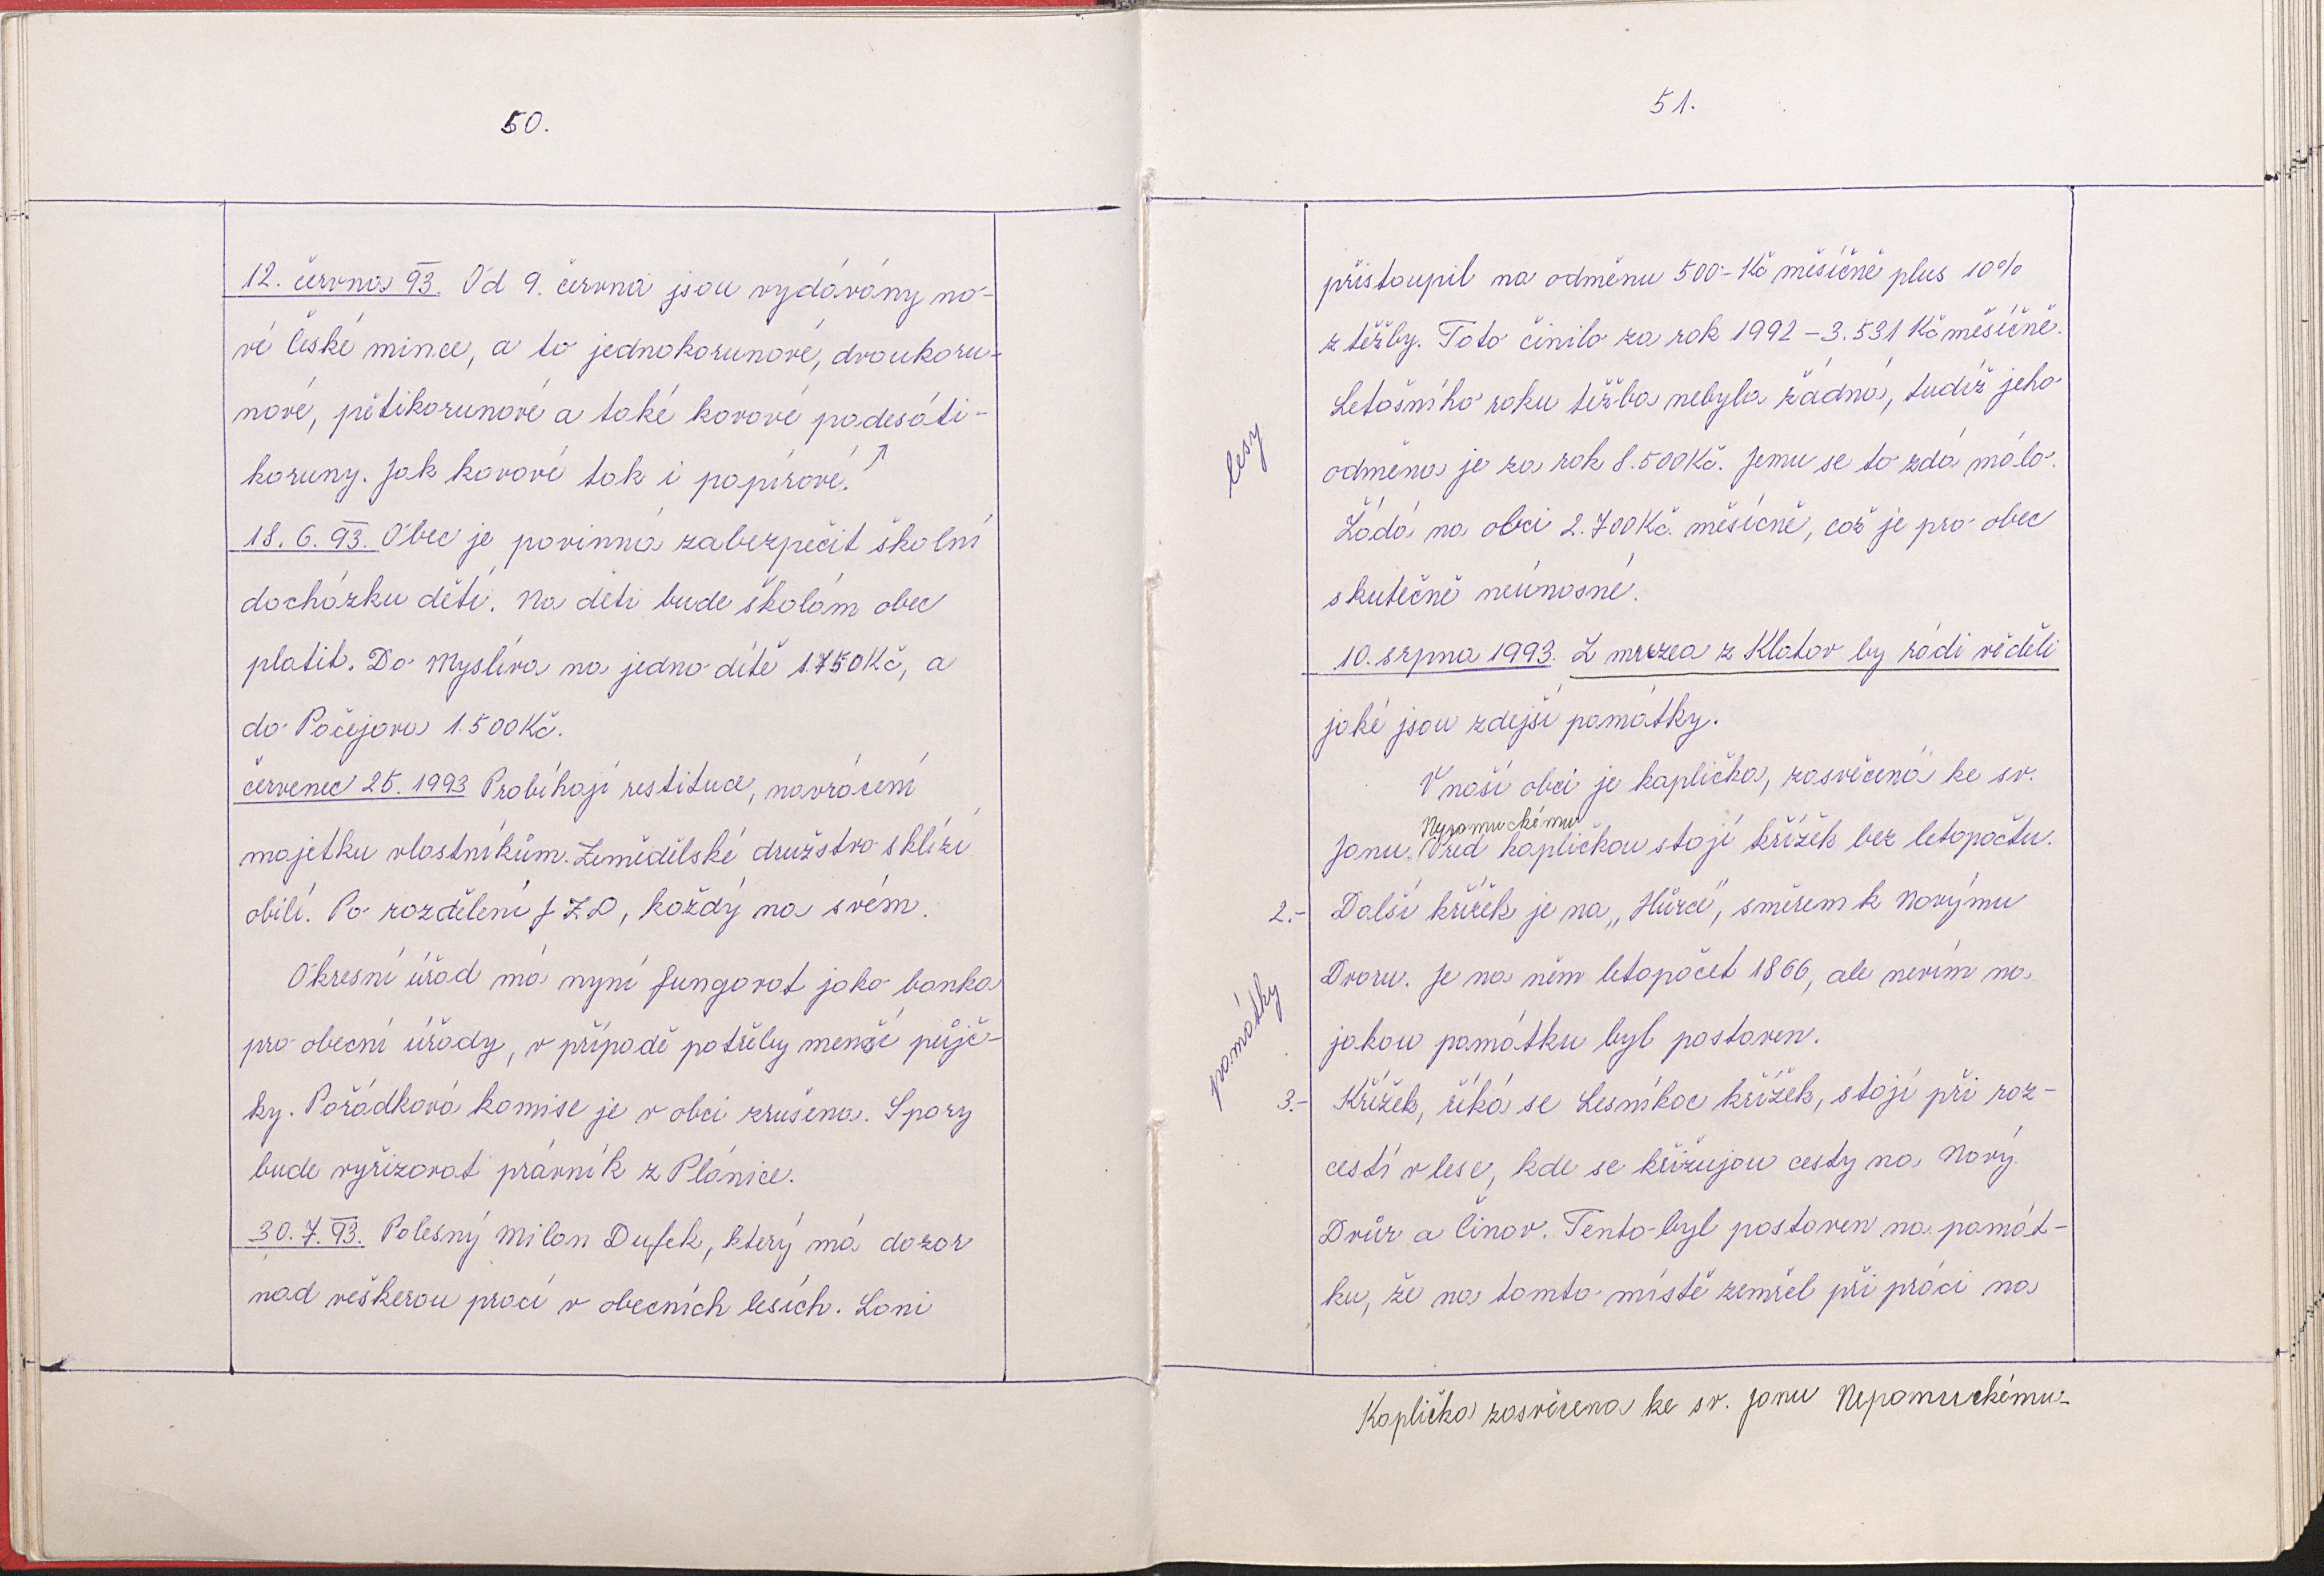 50.
12. června 93. Od 9. června jsou vydávány no-
vé české mince, a to jednokorunové, dvoukoru-
nové, pětikorunové a také kovové padesáti-
koruny. Jak kovové tak i papírové.
18. 6. 93. Obec je povinná zabezpečit školní
docházku dětí. Na děti bude školám obec
platit. Do Myslíva na jedno dítě 1.750Kč, a
do Pačejova 1.500Kč.
červenec 25. 1993 Probíhají restituce, navrácení
majetku vlastníkům. Zemědělské družstvo sklízí
obilí. Po rozdělení JZD, každý na svém.
Okresní úřad má nyní fungovat jako banka
pro obecní úřady, v případě potřeby menší půjč-
ky. Pořádková komise je v obci zrušena. Spory
bude vyřizovat právník z Plánice.
30. 7. 93. Polesný Milan Dufek, který má dozor
nad veškerou prací v obecních lesích. Loni
51.
přistoupil na odměnu 500.- Kč měsíčně plus 10%
z těžby. Toto činilo za rok 1992 - 3.531 Kč měsíčně.
Letošního roku těžba nebyla žádná, tudíž jeho
lesy
odměna je za rok 8.500Kč. Jemu se to zdá málo.
Žádá na obci 2.700Kč. měsíčně, což je pro obec
skutečně neúnosné.
10. srpna 1993. Z muzea z Klatov by rádi věděli
jaké jsou zdejší památky.
V naší obci je kaplička, zasvěcená ke sv.
Nepomuckému
Janu. Před kapličkou stojí křížek bez letopočtu.
2.- Další křížek je na „Hůrce", směrem k Novýmu
Dvoru. Je na něm letopočet 1866, ale nevím na
památky
jakou památku byl postaven.
3.- Křížek, říká se Lesníkoc křížek, stojí při roz-
cestí v lese, kde se křižujou cesty na Nový
Dvůr a Činov. Tento byl postaven na památ-
ku, že na tomto místě zemřel při práci na
Kaplička zasvěcena ke sv. Janu Nepomuckému-